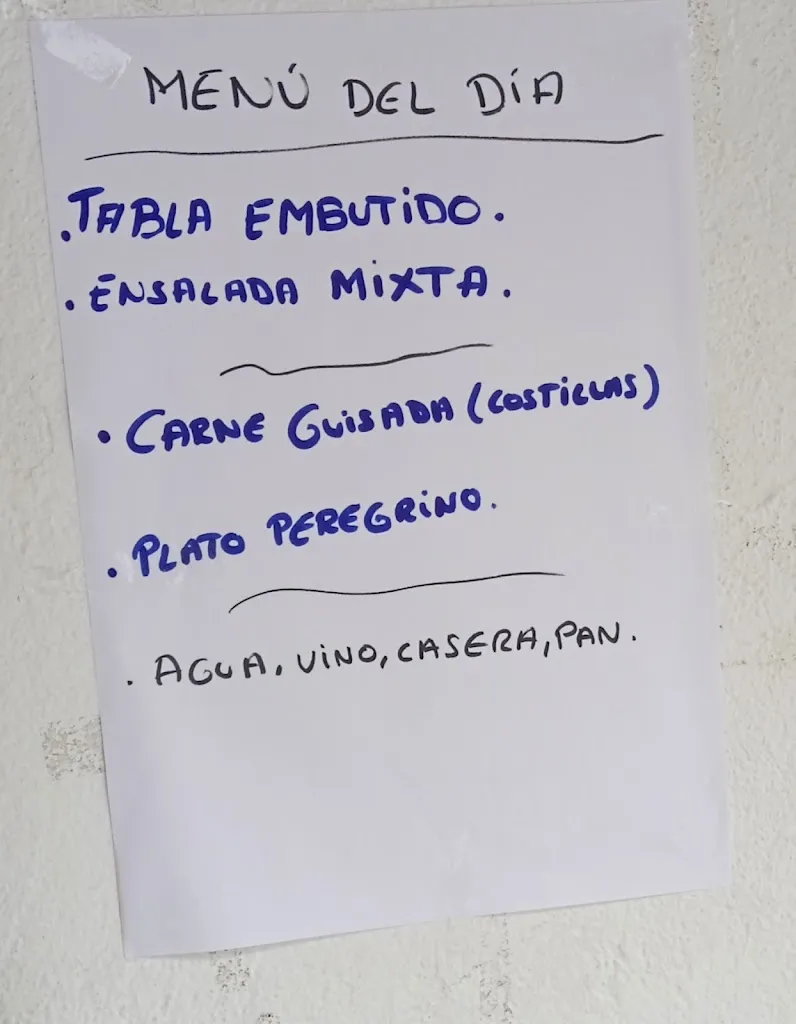 MENÚ DEL DÍA
. TABLA EMBUTIDO.
. ENSALADA MIXTA.
. CARNE GUISADA (COSTILLAS)
. PLATO PEREGRINO.
. AGUA, VINO, CASERA, PAN.